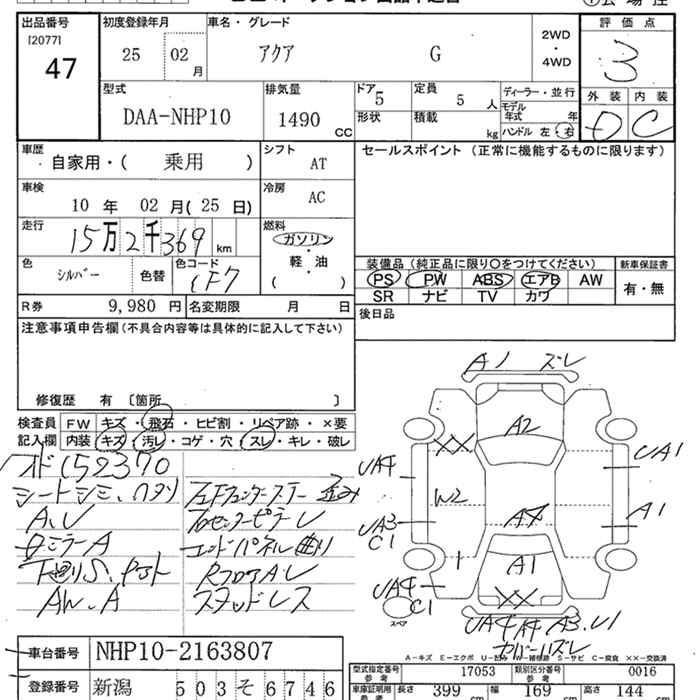 出品番号 初度登録年月 車名・グレード 2WD ・ 4WD 評価点
[2077] 47 25 02月 アクア G 3
型式 排気量 ドア 5 定員 5人 ディーラー・並行 外装 内装
DAA-NHP10 1490 CC 形状 積載 kg モデル年式 年 D C
ハンドル 左・右
車歴 シフト セールスポイント (正常に機能するものに限ります)
自家用・( 乗用 ) AT
車検 冷房
10年 02月(25日) AC
走行 燃料
15万2千369 km ガソリン・軽・油 ( )
色 シルバー 色替 色コード 1F7
装備品 (純正品に限り○をつけてください) 新車保証書
PS PW ABS エアB AW 有・無
SR ナビ TV カワ
R券 9,980円 名変期限 月 日 後日品
注意事項申告欄(不具合内容等は具体的に記入して下さい)
修復歴 有 〔箇所 〕
検査員 FW キズ・飛石・ヒビ割・リペア跡・×要
記入欄 内装 キズ・汚レ・コゲ・穴・スレ・キレ・破レ
152370
シートシミ、ヘタリ
A、U
ミラーA
AW、A
エンドパネル曲り
RフロアAU
スタッドレス
A1 ズレ
A2
XX
UA4 UA1
W2
UA3 C1 A1
A1
UA4 C1
XX
スペア
UA4 A4 A3、U1
カバーズレ
A-キズ E-エクボ U-凹み W-補修跡 S-サビ C-腐食 XX-交換済
車台番号 NHP10-2163807
登録番号 新潟 503そ6746
型式指定番号 参考 17053 類別区分番号 参考 0016
車庫証明用 参考 長さ 399 cm 幅 169 cm 高さ 144 cm